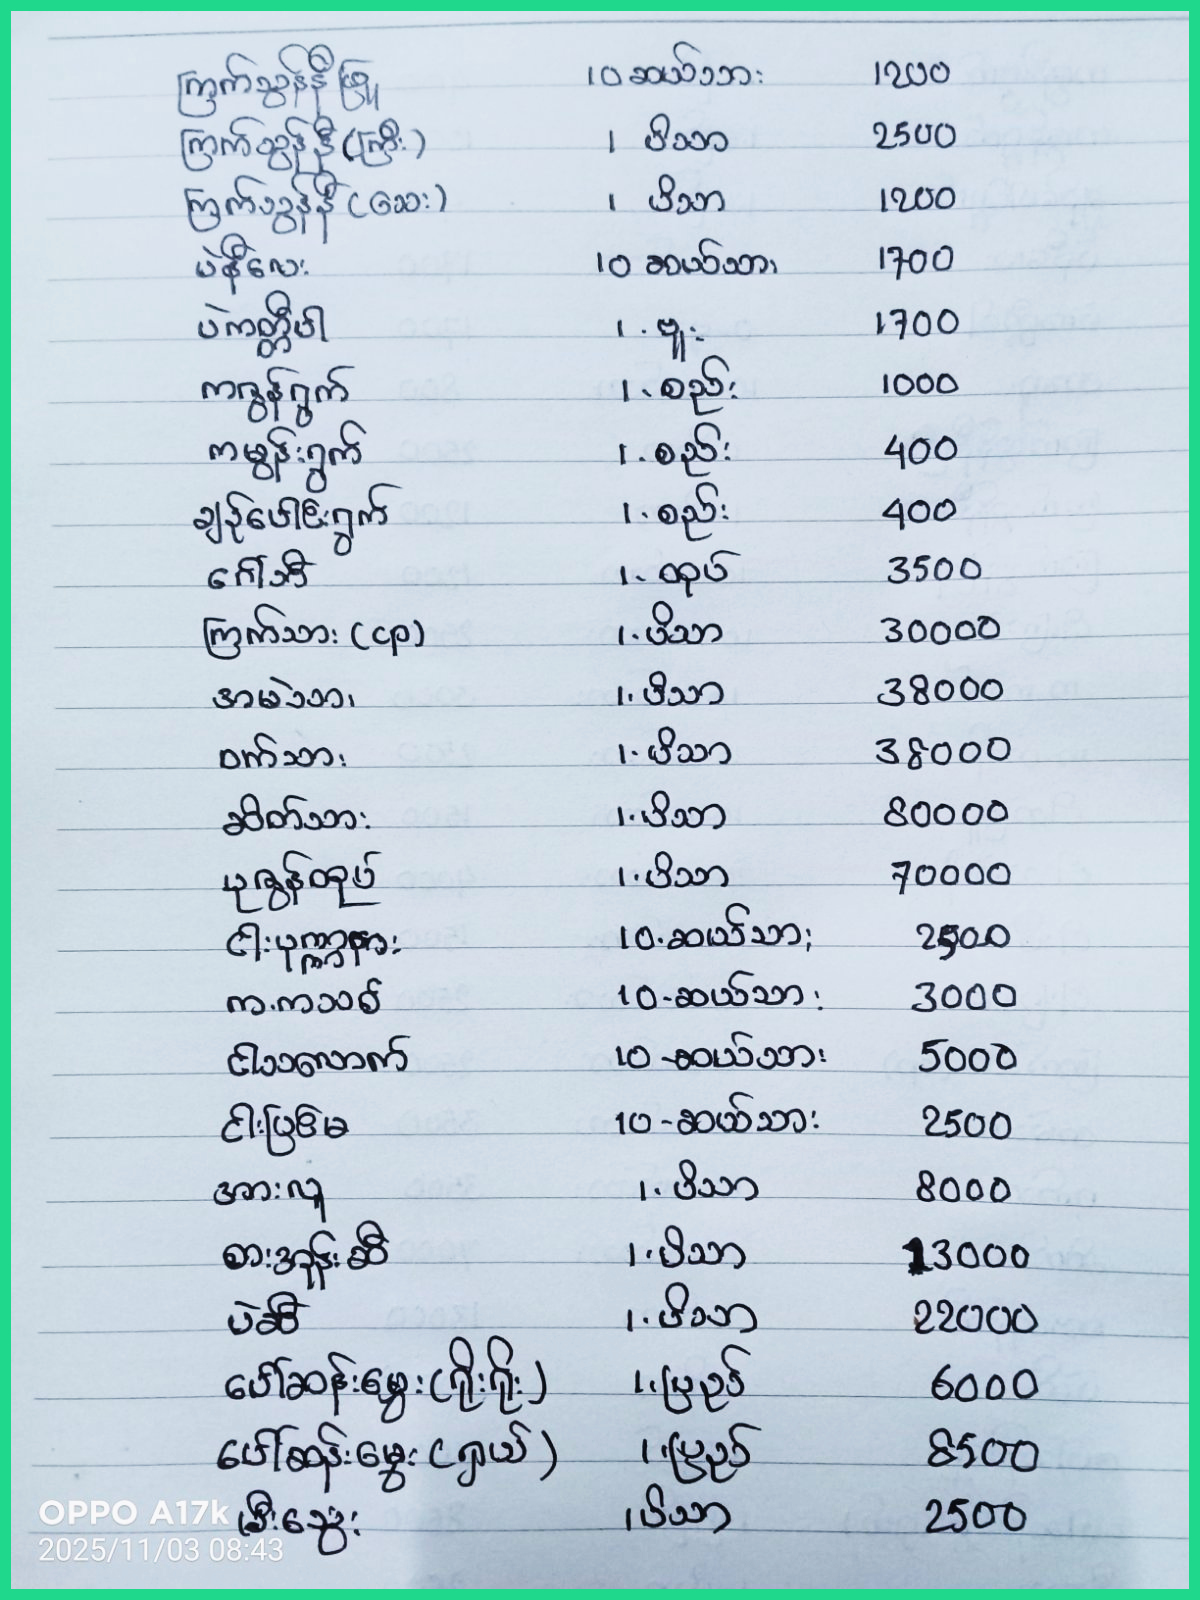 ကြက်သွန်နီဖြူ 10 ဆယ်သား 1200
ကြက်သွန်နီ (ကြီး) 1 ပိဿာ 2500
ကြက်သွန်နီ (သေး) 1 ပိဿာ 1200
ပဲနီလေး 10 ဆယ်သား 1700
ပဲကတ္တီပါ 1. ဗူး 1700
ကဇွန်ရွက် 1. စည်း 1000
ကမွန်းရွက် 1. စည်း 400
ချဉ်ပေါင်းရွက် 1. စည်း 400
ဂေါ်ဖီ 1. ထုပ် 3500
ကြက်သား (cp) 1. ပိဿာ 30000
အမဲသား 1. ပိဿာ 38000
ဝက်သား 1. ပိဿာ 38000
ဆိတ်သား 1. ပိဿာ 80000
ပုဇွန်ထုပ် 1. ပိဿာ 70000
ငါး 10. ဆယ်သား 2500
က.ကသစ် 10 - ဆယ်သား 3000
ငါးသလောက် 10 - ဆယ်သား 5000
ငါးမြစ်မ 10 - ဆယ်သား 2500
အာလူ 1. ပိဿာ 8000
စားအုန်းဆီ 1. ပိဿာ 13000
ပဲဆီ 1. ပိဿာ 22000
ပေါ်ဆန်းမွှေး (ရိုးရိုး) 1. ပြည် 6000
ပေါ်ဆန်းမွှေး (ရှယ်) 1. ပြည် 8500
မီးသွေး 1 ပိဿာ 2500
OPPO A17k
2025/11/03 08:43